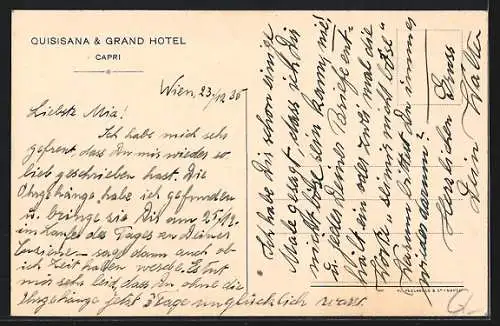 QUISISANA & GRAND HOTEL
CAPRI
Wien, 23/12 36
Liebste Mia!
Ich habe mich sehr
gefreut, dass Du mir wieder so
lieb geschrieben hast. Die
Ohrgehänge habe ich gefunden
u. bringe sie Dir am 25./12.
im Laufe des Tages zu Deiner
sage dann auch ob
ich Zeit haben werde. Es tut
mir sehr leid, dass Du ohne die
Ohrgehänge jetzt Tage unglücklich warst.
Ich habe Dir schon einige
Male gesagt, dass ich Dir
nicht böse sein kann, nie!
u. jeder Deiner Briefe ent-
hält ein oder zwei mal die
Worte "sei mir nicht böse"
Warum bittest Du immer
wieder darum?
Herzlichen Gruss
Dein Walter